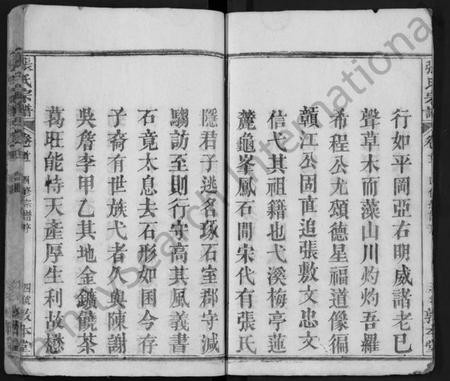 行如平岡亞右明威諸老已
聲草木而藻山川灼灼吾羅
希程公尤頌德星福道像徊
贛江公固直追張敷文忠文
信弋其祖籍也弋溪梅亭蓮
麓龜峯鳳石間宋代有張氏
張氏宗譜
卷首
隱君子逃名琢石室郡守減
騶訪至則行矣高其風義書
石竟太息去石形如囷今存
子裔有世族弋者久與陳謝
吳詹李甲乙其地金鑛磽茶
萵旺能恃天產厚生利故懋
張氏宗譜
卷首
四修宗譜序
敦本堂
FamilySearch International